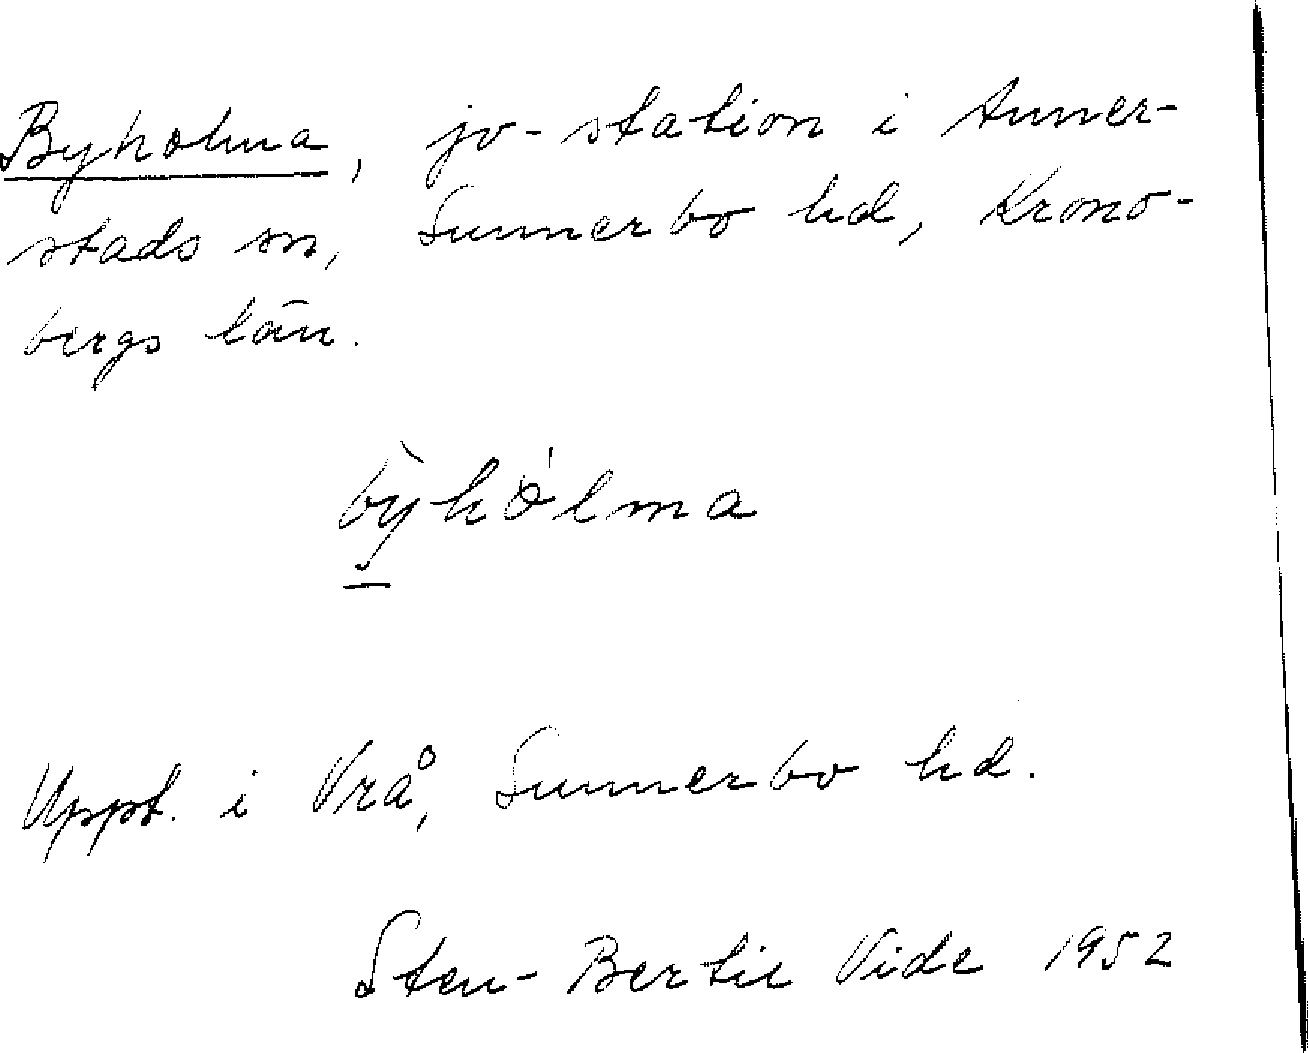 Byholma, jv-station i Anner-
stads sn, Sunnerbo hd, Krono-
bergs län.
bỳhólma
Uppt. i Vrå, Sunnerbo hd.
Sten-Bertil Vide 1952